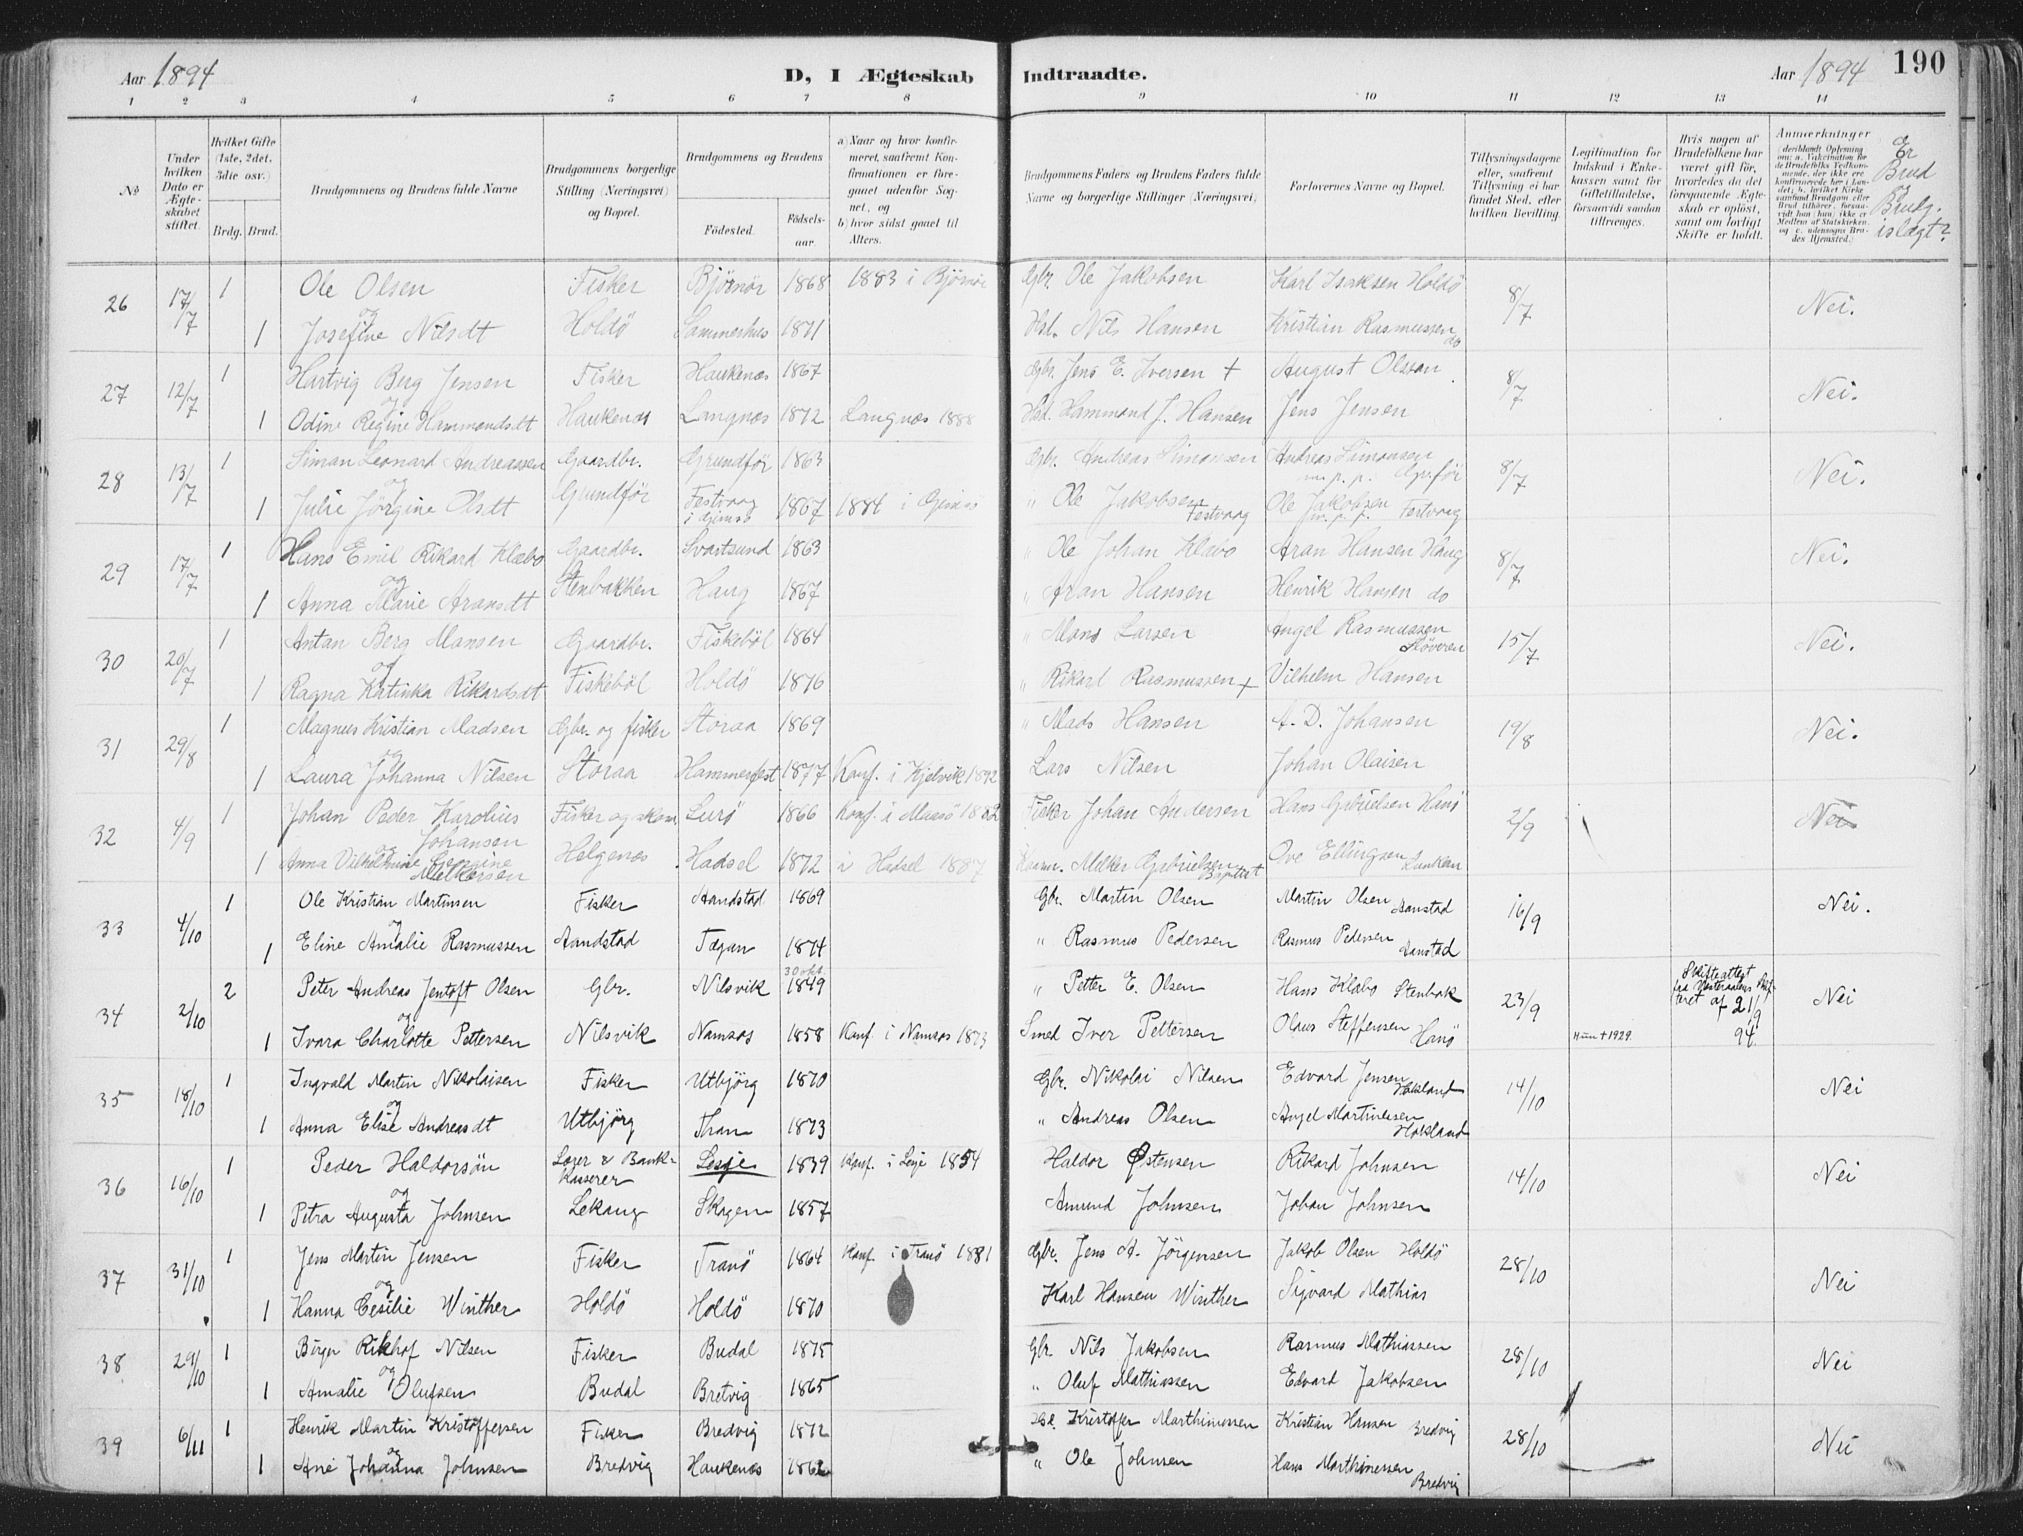 Aar 1894
D, I Ægteskab Indtraadte.
Aar 1894
190
1 2 3 4 5 6 7 8 9 10 11 12 13 14
No
Under hvilken Dato er Ægteskabet stiftet.
Hvilket Gifte (1ste, 2det, 3die osv.)
Brdg. Brud.
Brudgommens og Brudens fulde Navne
Brudgommens borgerlige Stilling (Næringsvei) og Bopæl.
Brudgommens og Brudens
Fødested. Fødsels-aar.
a) Naar og hvor konfirmeret, saafremt Konfirmationen er foregaaet udenfor Sognet, og
b) hvor sidst gaaet til Alters.
Brudgommens Faders og Brudens Faders fulde Navne og borgerlige Stillinger (Næringsvei)
Forlovernes Navne og Bopæl.
Tillysningsdagene eller, saafremt Tillysning ei har fundet Sted, efter hvilken Bevilling
Legitimation for Indskud i Enkekassen samt for Giftetilladelse, forsaavidt saadan tiltrænges.
Hvis nogen af Brudefolkene har været gift før, hvorledes da det foregaaende Ægteskab er opløst, samt om lovligt Skifte er holdt.
Anmærkninger
Er Brud og Brudg. islægt?
26 17/7 1 Ole Olsen Fisker Bjørnör 1868 1883 i Bjørnör Gbr. Ole Jakobsen Karl Isaksen Holdö 8/7 Nei.
og
1 Josefine Nilsdt Holdö Sommerhus 1871 Hsl. Nils Hansen Kristian Rasmussen do
27 12/7 1 Hartvig Berg Jensen Fisker Haukenæs 1867 Gbr. Jens E. Iversen + August Olsson 8/7 Nei.
og
1 Odine Regine Hammondsdt Haukenæs Langnæs 1872 Langnæs 1888 Hsl. Hammond J. Hansen Jens Jensen
28 13/7 1 Simon Leonard Andreassen Gaardbr. Grundför 1863 Gbr. Andreas Simonsen Andreas Simonsen m.p.p. Grfør 8/7 Nei.
og
1 Julie Jörgine Olsdt Grundför Festvaag i Gimsö 1867 1884 i Gimsö " Ole Jakobsen Festvaag Ole Jakobsen m.p.p. Festvaag
29 17/7 1 Hans Emil Rikard Klæbo Gaardbr. Svartsund 1863 " Ole Johan Klæbo Aran Hansen Haug 8/7 Nei.
og
1 Anna Marie Aransdt Stenbakken Haug 1867 " Aran Hansen Henrik Hansen do
30 20/7 1 Antan Berg Mansen Gaardbr. Fiskeböl 1864 " Mons Larsen Angel Rasmussen Stöveren 15/7 Nei.
og
1 Ragna Katinka Rikardsdt Fiskeböl Holdö 1876 " Rikard Rasmussen + Vilhelm Hansen
31 29/8 1 Magnus Kristian Madsen Gbr. og fisker Storaa 1869 " Mads Hansen A. D. Johansen 19/8 Nei.
og
1 Laura Johanna Nilsen Storaa Hammerfest 1877 Konf. i Kjelvik 1892 Lars Nilsen Johan Olaisen
32 4/9 1 Johan Peder Karolius Johansen Fisker og skom. Lurö 1866 Konf. i Maasö 1882 Fisker Johan Andersen Hans Gabrielsen Hanö 2/9 Nei
og
1 Anna Vilhelmine Georgine Melkersen Helgenæs Hadsel 1872 i Hadsel 1887 Melker Gabrielsen Ove Ellingsen
33 4/10 1 Ole Kristian Martinsen Fisker Aandstad 1869 Gbr. Martin Olsen Martin Olsen Aanstad 16/9 Nei.
og
1 Eline Amalie Rasmussen Aandstad Tegan 1874 " Rasmus Pedersen Rasmus Pedersen Aanstad
34 2/10 2 Peter Andreas Jentoft Olsen Gbr. Nilsvik 30 okt. 1849 " Petter E. Olsen Hans Klæbo Stenbak 23/9 Skifteattest fra Vesteraalens af 21/9 94. Nei
og
1 Ivara Charlotte Pettersen Nilsvik Namsos 1858 Konf. i Namsos 1873 Smed Iver Pettersen Olaus Steffensen Hanö Hun + 1929.
35 18/10 1 Ingvald Martin Nikolaisen Fisker Utbjörg 1870 Gbr. Nikolai Nilsen Edvard Jensen Hokland 14/10 Nei
og
1 Anna Elise Andreasdt Utbjörg Thon 1873 " Andreas Olsen Angel Martinusen Hokland
36 16/10 1 Peder Haldorsön Lærer & Bankkasserer Lesje 1839 Konf. i Lesje 1854 Haldor Østensen Rikard Johnsen 14/10 Nei
og
1 Petra Augusta Johnsen Lekang Skagen 1857 Amund Johnsen Johan Johnsen
37 31/10 1 Jens Martin Jensen Fisker Tranö 1864 Konf. i Tranö 1881 Gbr. Jens A. Jörgensen Jakob Olsen Holdö 28/10 Nei
og
1 Hanna Cesilie Winther Holdö Holdö 1870 Karl Hansen Winther Sigvard Mathias
38 29/10 1 Birger Rikhof Nilsen Fisker Budal 1875 Gbr. Nils Jakobsen Rasmus Mathiassen 28/10 Nei
og
1 Amalie Olufsen Budal Bretvig 1865 " Oluf Mathiassen Edvard Jakobsen
39 6/11 1 Henrik Martin Kristoffersen Fisker Bredvig 1872 Hsl. Kristoffer Marthinussen Kristian Hansen Bredvig 28/10 Nei
og
1 Ane Johanna Johnsen Bredvig Haukenæs 1862 " Ole Johnsen Hans Marthinussen Bredvig